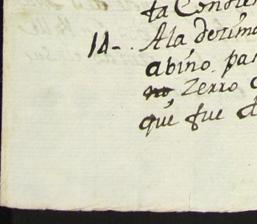 ta Concien
14-. A la dezima
abino. par
no Zerro
que fue d